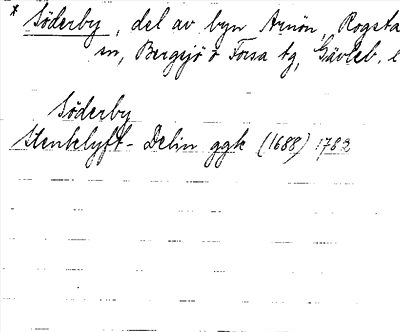 * Söderby, del av byn Arnön, Rogsta
sn, Bergsjö o Forsa tg, Gävleb. l
Söderby
Stenklyft-Delin ggk (1688) 1782